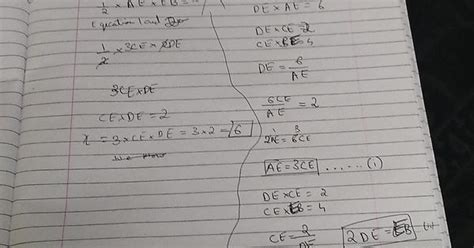 1/2 × AE × EB =
Equation 1 and
1/2 × 3CE × 2DE
3CE×DE
CE×DE = 2
x = 3×CE×DE = 3×2 = 6
DE×AE = 6
DE×CE = 2
CE×EB = 4
DE = 6/AE
6CE/AE = 2
2AE = 6CE
AE = 3CE ......(1)
DE×CE = 2
CE×EB = 4
CE = 2/DE
2DE = EB